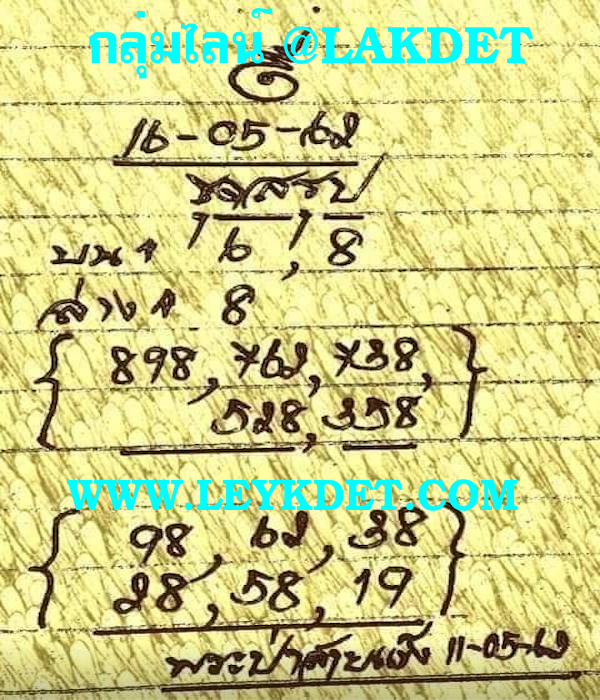 กลุ่มไลน์ @LAKDET
16-05-62
ชุดสรุป
บน 6, 8
ล่าง 8
{ 898, 762, 738,
528, 358 }
WWW.LEYKDET.COM
{ 98, 62, 38
28, 58, 19 }
พระป่าสายแข็ง 11-05-62